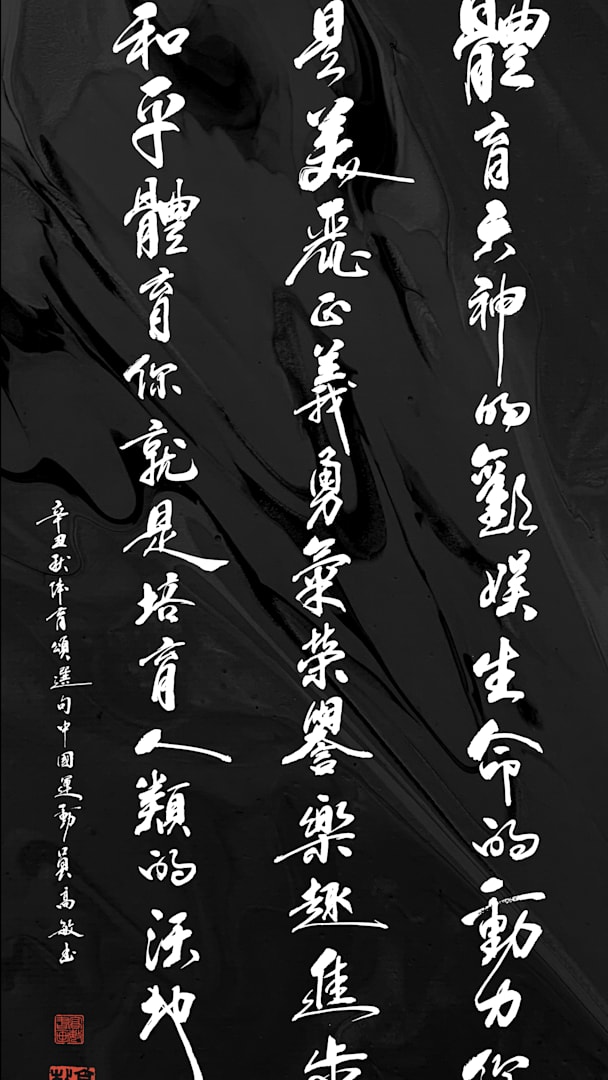 體育天神的歡娛生命的動力你
是美麗正義勇氣榮譽樂趣進步
和平體育你就是培育人類的沃地
辛丑秋体育頌選句中國運動員高敏书